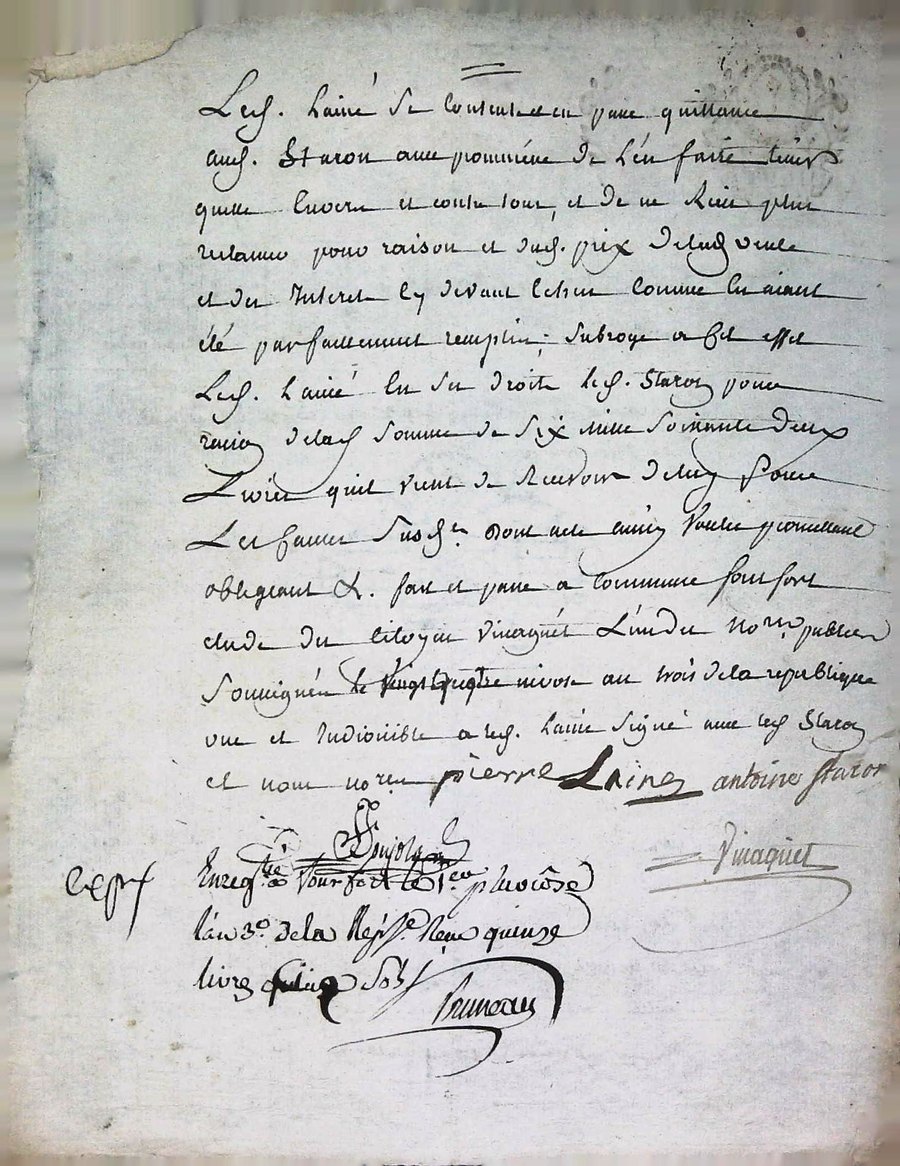 Led. Lainé se Contente et en passe quittance
aud. Staron avec promesse de l'en faire tenir
quitte Envers et contre tous, et de ne Rien plus
pour raison et dud. prix delad vente
et des Interet Cy devant Echus Comme En aiant
été parfaitement remplis; Subroge a Cet effet
Led. Lainé En ses droits led. Staron pour
raison delad Somme de Six mille Soixante deux
Livres quil vient de Recevoir deluy Pour
Les Causes Susd. Dont acte ainsi Voulu promettant
obligeant &. fait et passé a Commune fort
etude du Citoyen Vinaquet L'un des no.res publics
Soussignés le Vingt quatre nivose an trois dela republique
une et Indivisible a led. Lainé Signé avec led Staron
et nous no.res pierre Laine antoine staron
Vinaquet
Enreg.tré a le 1.er pluviôse
l'an 3.e dela Rép.e Reçu quinze
livres Sols
Bruneau